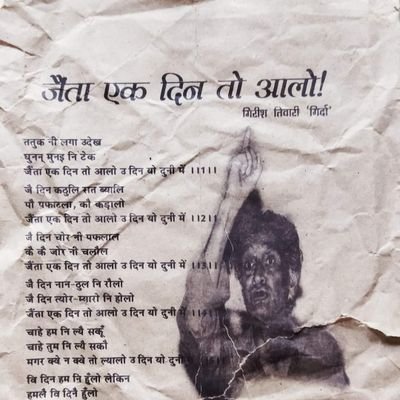 जैंता एक दिन तो आलो!
गिरीश तिवारी 'गिर्दा'
ततुक नी लगा उदेख
घुनन् मुनइ नि टेक
जैंता एक दिन तो आलो उ दिन यो दुनी में ।।1।।
जै दिन कठुलि रात ब्यालि
पौ फाटला, कौ कड़ालो
जैंता एक दिन तो आलो उ दिन यो दुनी में ।।2।।
जै दिन चोर नी फलाल
कै कै जोर नी चलौल
जैंता एक दिन तो आलो उ दिन यो दुनी में ।।3।।
जै दिन नान-ठुल नि रौलो
जै दिन त्योर-म्यारो नि होलो
जैंता एक दिन तो आलो उ दिन यो दुनी में ।।4।।
चाहे हम नि ल्यै सकूँ
चाहे तुम नि ल्यै सकौ
मगर क्वे न क्वे तो ल्यालो उ दिन यो दुनी में
वि दिन हम नि हुँलो लेकिन
हमलै वि दिनै हुँलो